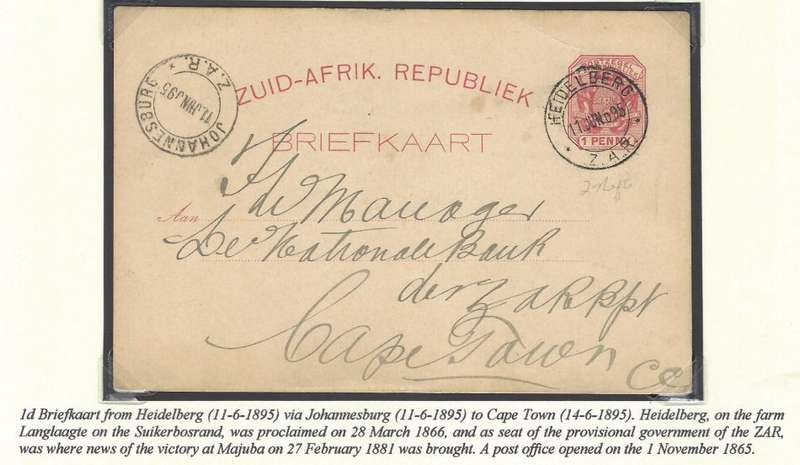 ZUID-AFRIK. REPUBLIEK
BRIEFKAART
JOHANNESBURG
11.JUN.95
Z.A.R.
HEIDELBERG
11.JUN.95
Z.A.R.
1 PENNY
Aan
de Manager
De Nationale Bank
der Z A Rkpt
Cape Town
1d Briefkaart from Heidelberg (11-6-1895) via Johannesburg (11-6-1895) to Cape Town (14-6-1895). Heidelberg, on the farm
Langlaagte on the Suikerbosrand, was proclaimed on 28 March 1866, and as seat of the provisional government of the ZAR,
was where news of the victory at Majuba on 27 February 1881 was brought. A post office opened on the 1 November 1865.